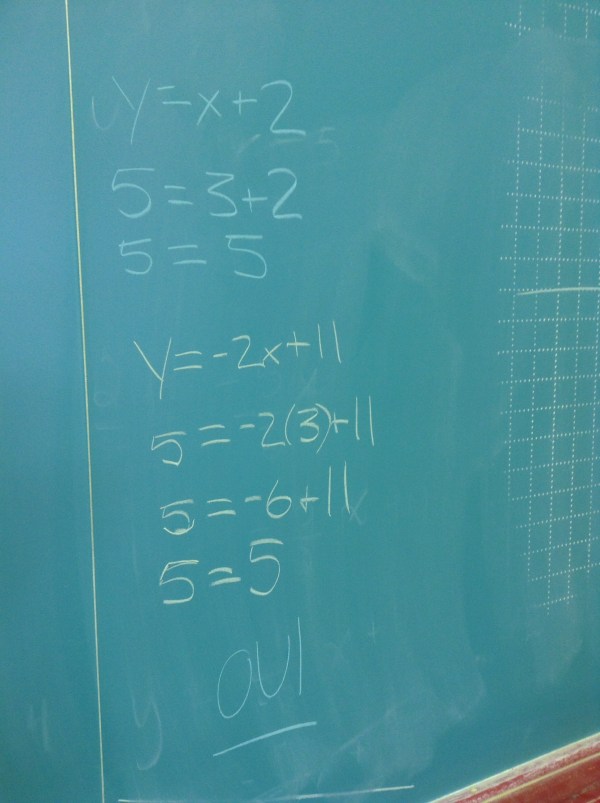 y=x+2
5=3+2
5=5
y=-2x+11
5=-2(3)+11
5=-6+11
5=5
OUI